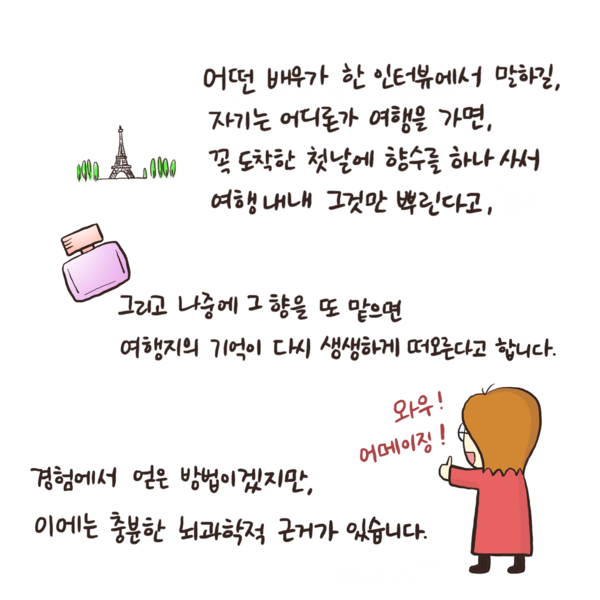 어떤 배우가 한 인터뷰에서 말하길,
자기는 어디론가 여행을 가면,
꼭 도착한 첫날에 향수를 하나 사서
여행 내내 그것만 뿌린다고,
그리고 나중에 그 향을 또 맡으면
여행지의 기억이 다시 생생하게 떠오른다고 합니다.
와우!
어메이징!
경험에서 얻은 방법이겠지만,
이에는 충분한 뇌과학적 근거가 있습니다.